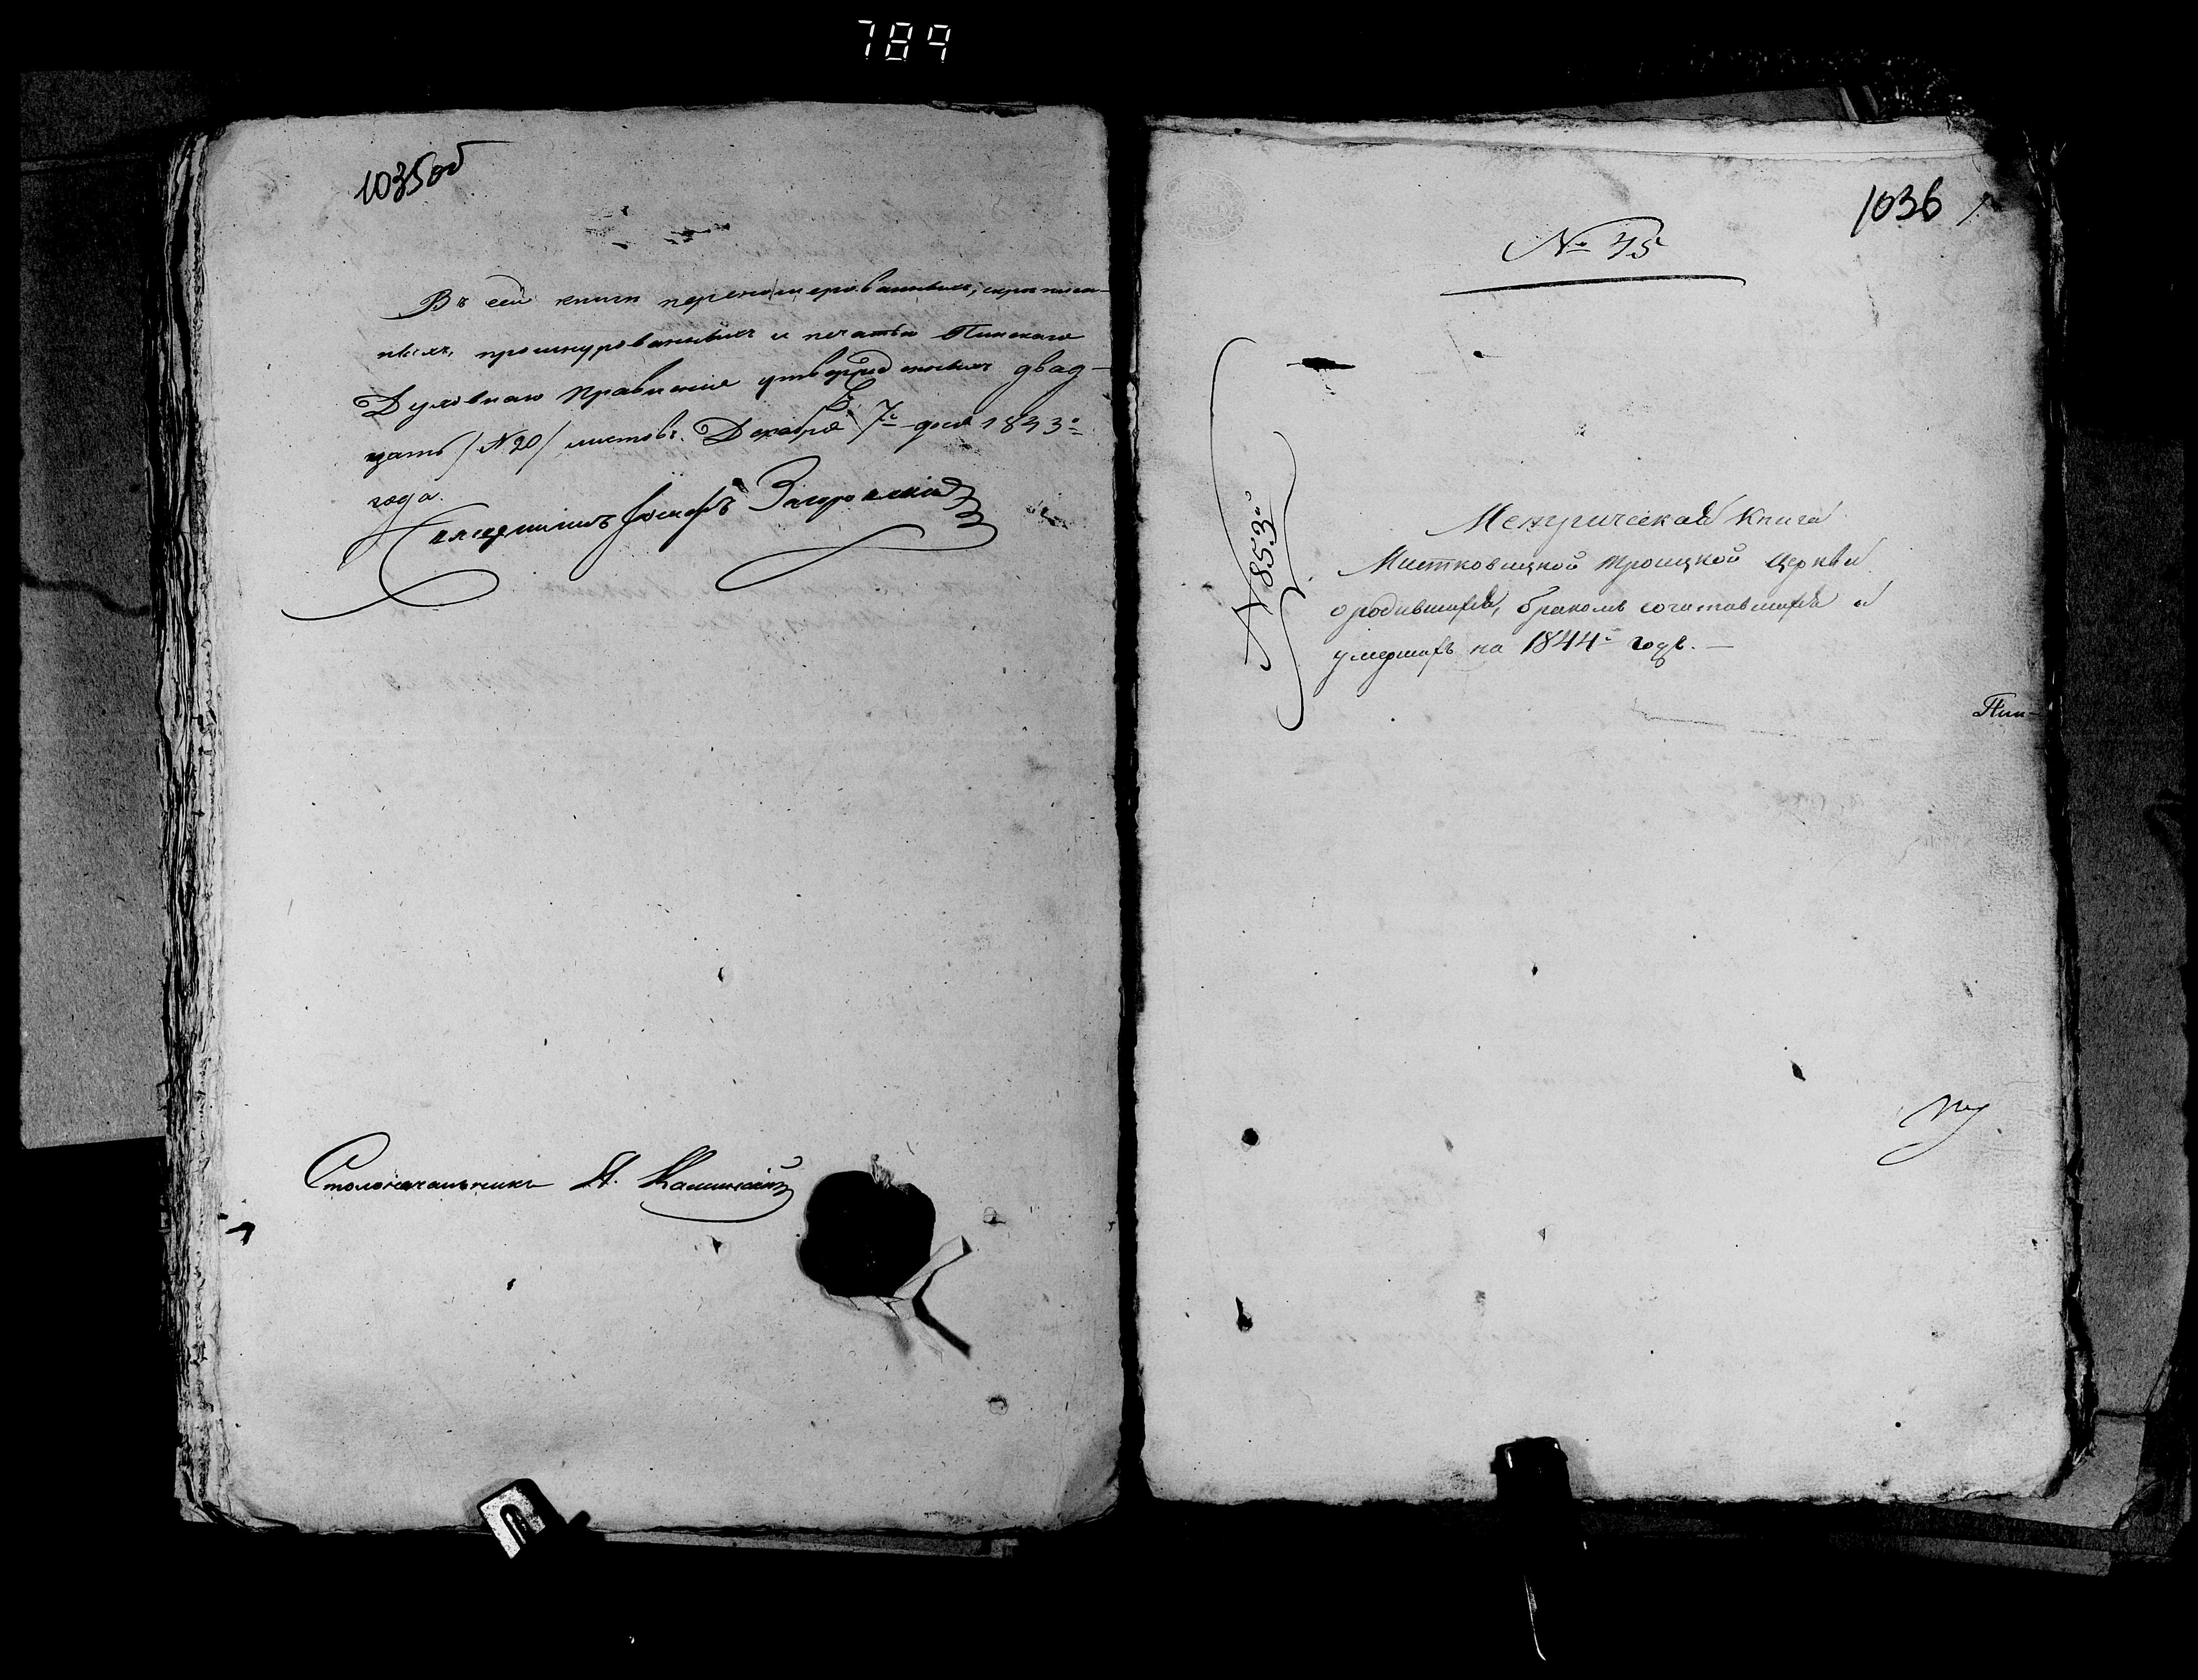 789
1035об
Въ сей книги перенумерованныхъ, скрепленныхъ,
прошнурованныхъ и печатью Пинскаго
Духовнаго Правленія утвержденныхъ двад-
цать /№ 20/ листовъ. Декабря 7го дня 1843го
года.
Священникъ Іосифъ Загоровскій
Столоначальникъ А.
1036 1.
№ 45
№ 853й
Метрическая Книга
Мистковицкой Троицкой Церкви
о родившихся, бракомъ сочитавшихся и
умершихъ на 1844й годъ. —
Пин-